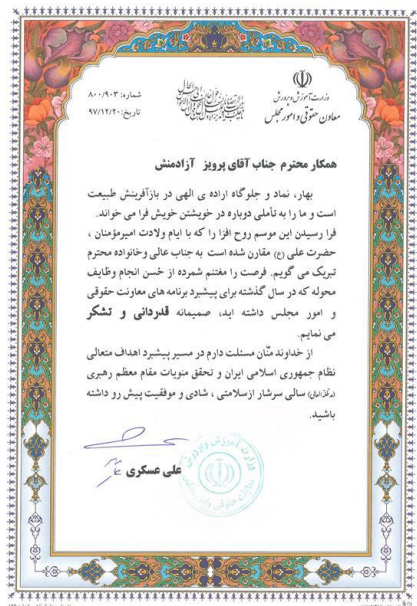 وزارت آموزش و پرورش
معاون حقوقی و امور مجلس
شماره: ۸۰۰/۹۰۳
تاریخ: ۹۷/۱۲/۲۰
همکار محترم جناب آقای پرویز آزادمنش
بهار، نماد و جلوگاه اراده ی الهی در بازآفرینش طبیعت
است و ما را به تأملی دوباره در خویشتن خویش فرا می خواند.
فرا رسیدن این موسم روح افزا را که با ایام ولادت امیرمؤمنان ،
حضرت علی (ع) مقارن شده است به جناب عالی وخانواده محترم
تبریک می گویم. فرصت را مغتنم شمرده از حُسن انجام وظایف
محوله که در سال گذشته برای پیشبرد برنامه های معاونت حقوقی
و امور مجلس داشته اید، صمیمانه قدردانی و تشکر
می نمایم.
از خداوند منّان مسئلت دارم در مسیر پیشبرد اهداف متعالی
نظام جمهوری اسلامی ایران و تحقق منویات مقام معظم رهبری
(مدظله‌العالی) سالی سرشار ازسلامتی ، شادی و موفقیت پیش رو داشته
باشید.
علی عسکری
وزارت آموزش و پرورش